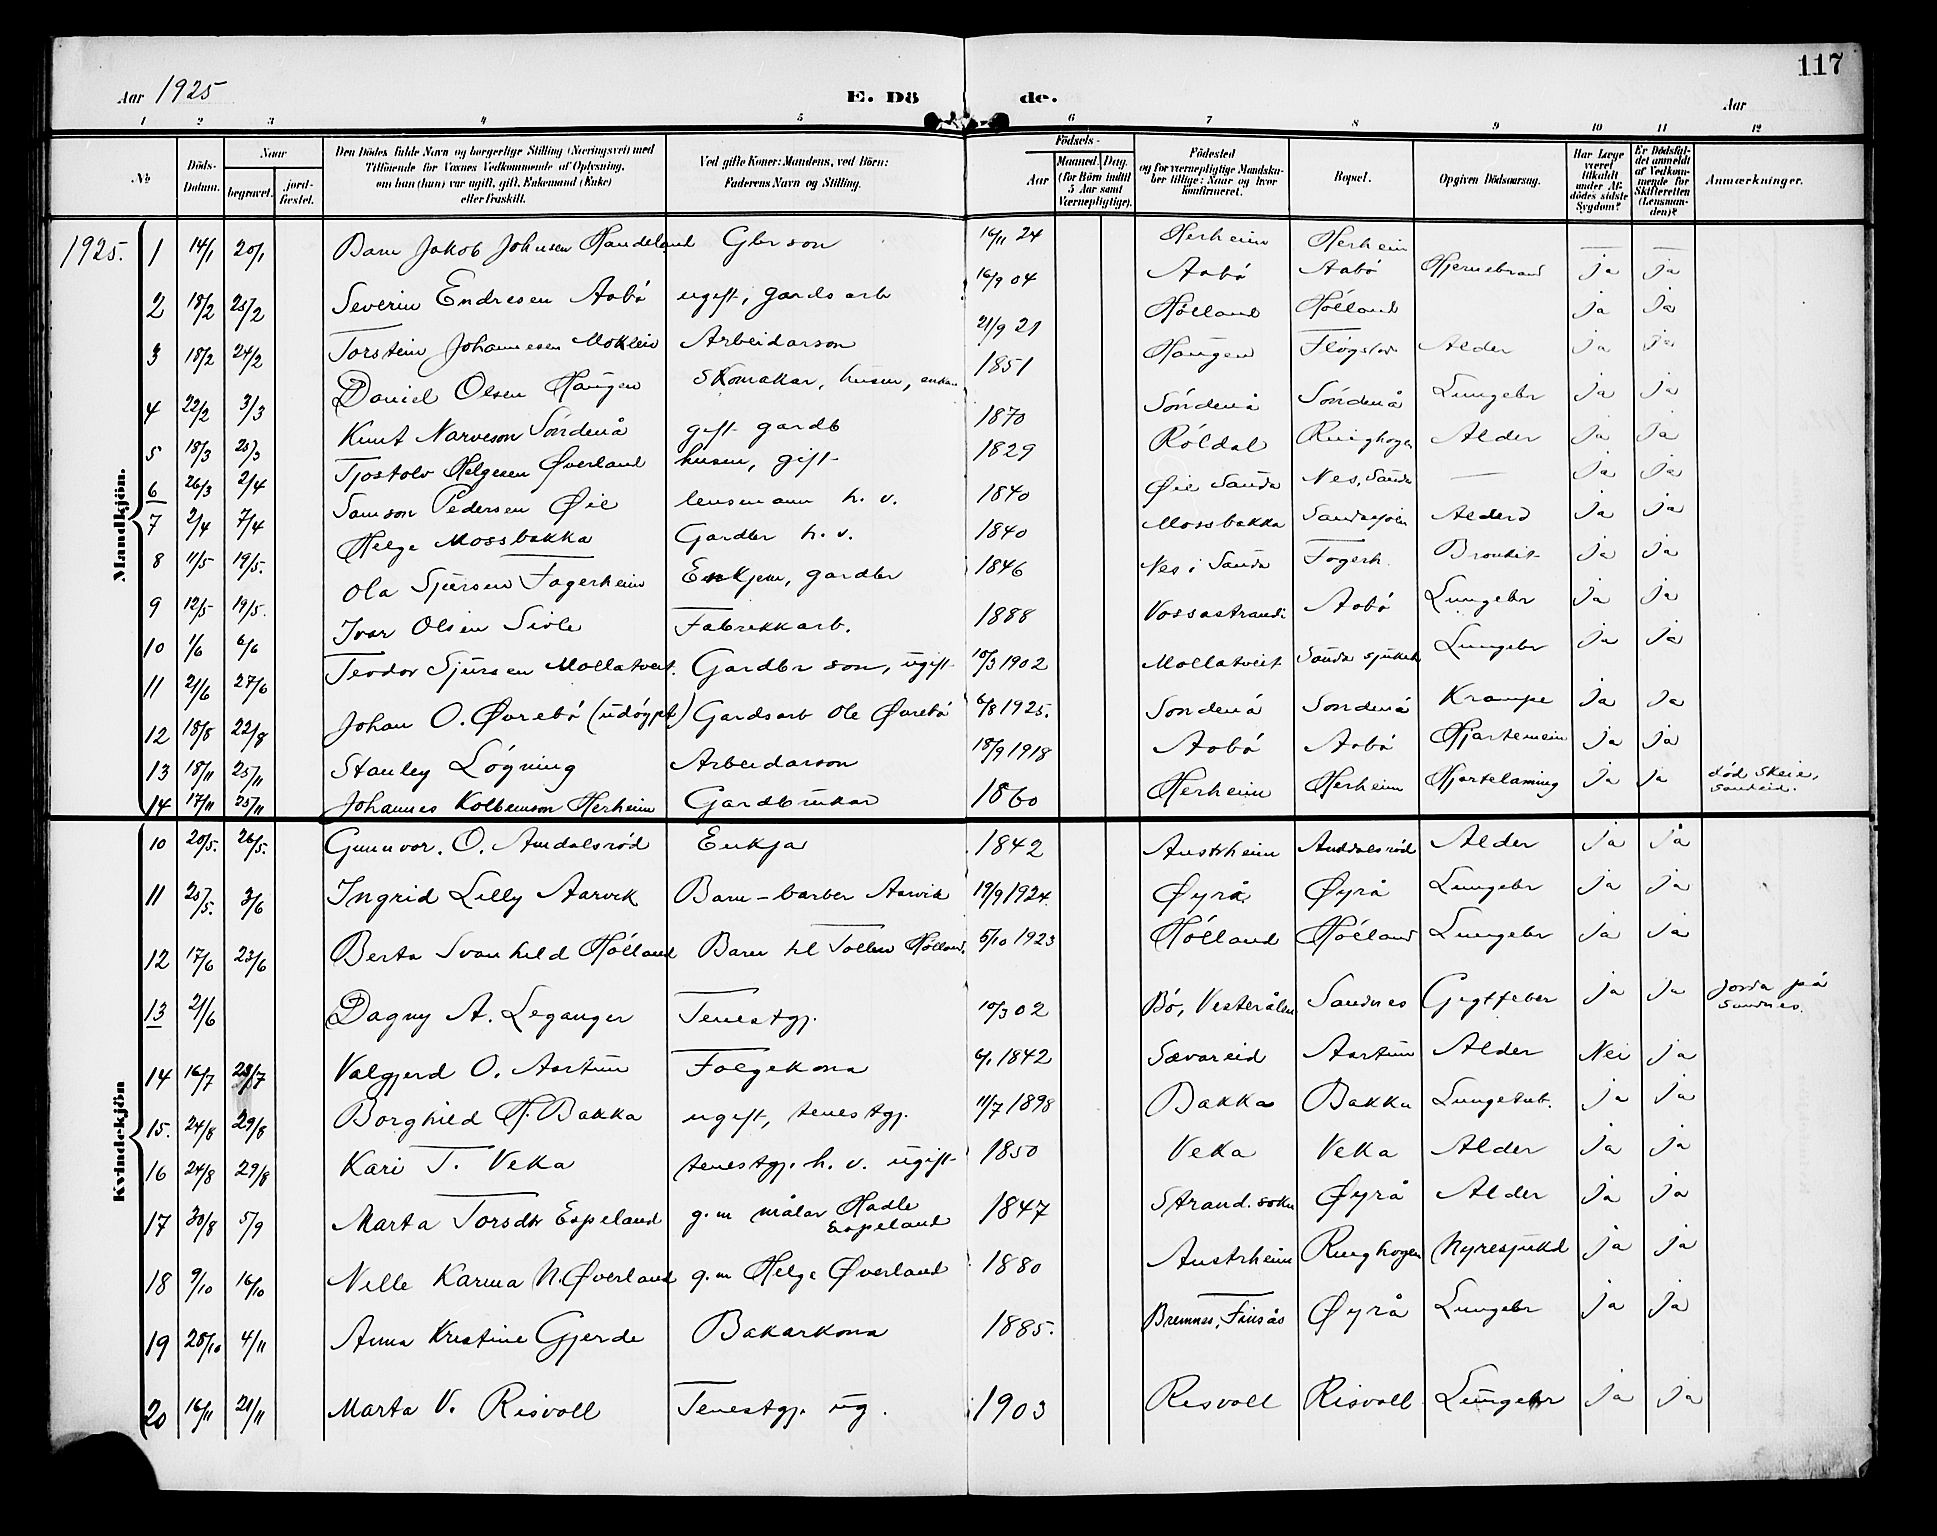 117
Aar 1925 E. Dö de. Aar
1 2 3 4 5 6 7 8 9 10 11 12
No Döds-Datum. Naar begravet. jord-fæstet. Den Dödes fulde Navn og borgerlige Stilling (Næringsvei) med Tilföiende for Voxnes Vedkommende af Oplysning, om han (hun) var ugift, gift, Enkemand (Enke) eller fraskilt. Ved gifte Koner: Mandens, ved Börn: Faderens Navn og Stilling. Födsels- Aar Maaned. Dag. (for Börn indtil 5 Aar samt Værnepligtige). Födested og for værnepligtige Mandskaber tillige: Naar og hvor konfirmeret. Bopæl. Opgiven Dödsaarsag. Har Læge været tilkaldt under Afdödes sidste Sygdom? Er Dödsfaldet anmeldt af Vedkommende for Skifteretten (Lensmanden)? Anmærkninger.
Mandkjön.
1925. 1 14/1 20/1 Barn Jakob Johnsen Handeland Gbr son 16/11 24 Herheim Herheim — —
2 18/2 25/2 Severin Endresen Aabö ugift, gards arb 16/9 04 Aabö Aabö Hjernebrand ja ja
3 18/2 24/2 Torstein Johannesen Moklein Arbeidarson 21/9 21 Hölland Hölland ja ja
4 22/2 3/3 Daniel Olsen Haugen Skomakar, husm, 1851 Haugen Flögstad Alder ja ja
5 18/3 25/3 Knut Narveson Söndenå gift gardb 1870 Söndenå Söndenå Lungebr ja ja
6 26/3 2/4 Tjostolv Helgesen Överland husm, gift 1829 Röldal Ringhogen Alder ja ja
7 2/4 7/4 Samson Pedersen Øie lensmann h. v. 1840 Øie Sauda Nes, Sauda — ja ja
8 11/5 19/5. Helge Mossbakka Gardbr h. v. 1840 Mossbakka Saudasjöen Alderd ja ja
9 12/5 19/5. Ola Sjursen Fagerheim Enkjem, gardbr 1846 Nes i Sauda Fagerh. Bronkit ja ja
10 1/6 6/6 Ivar Olsen Sivle Fabrikkarb. 1888 Vossastrandi Aabö Lungebr ja ja
11 21/6 27/6 Teodor Sjursen Mollatveit. Gardbr son, ugift 10/3 1902 Mollatveit Sauda sjukeh Lungebr ja ja
12 18/8 22/8 Johan O. Øvrebö (udöypt) Gardsarb Ole Øvrebö 6/8 1925. Sondenå Sondenå Krampe ja ja
13 18/11 25/11 Stanley Lögning Arbeidarson 18/9 1918 Aabö Aabö ja ja
14 17/11 25/11 Johannes Kolbeinson Herheim Gardbrukar 1860 Herheim Herheim Hjartelaming ja ja död Skeie, Sandeid.
Kvindekjön
10 20/5. 26/5. Gunnvor. O. Amdalsröd Enkja 1842 Austrheim Amdalsröd Alder ja ja
11 25/5. 3/6 Ingrid Lilly Aarvik Barn - barber Aarvik 19/9 1924. Øyrå Øyrå Lungebr ja ja
12 17/6 23/6 Berta Svanhild Hölland Barn til Hölland. 5/10 1923 Hölland Hölland Lungebr ja ja
13 21/6 Dagny A. Leganger Tenestgj. 10/3 02 Bö, Vesterålen Sandnes Gigtfeber ja ja Jorda på Sandnes.
14 16/7 23/7 Valgjerd O. Aartun Folgekona 6/1 1842 Sævareid Aartun Alder Nei ja
15. 24/8 29/8 Borghild H. Bakka ugift, tenestgj. 11/7 1898 Bakka Bakka Lungetub. ja ja
16 24/8 29/8 Kari T. Veka tenestgj. h. v. ugift 1850 Veka Veka Alder ja ja
17 30/8 5/9 Marta Torsdtr Espeland g. m målar Hadle Espeland 1847 Strand. sokn Øyrå Alder ja ja
18 9/10 16/10 Nille Karina N. Øverland g. m Helge Øverland 1880 Austrheim Ringhogen Nyresjukd ja ja
19 28/10 4/11 Anna Kristine Gjerde Bakarkona 1885. Bremnes, Finsås Øyrå Lungebr ja ja
20 16/11 21/11 Marta V. Risvoll Tenestgj. ug. 1903 Risvoll Risvoll Lungebr ja ja